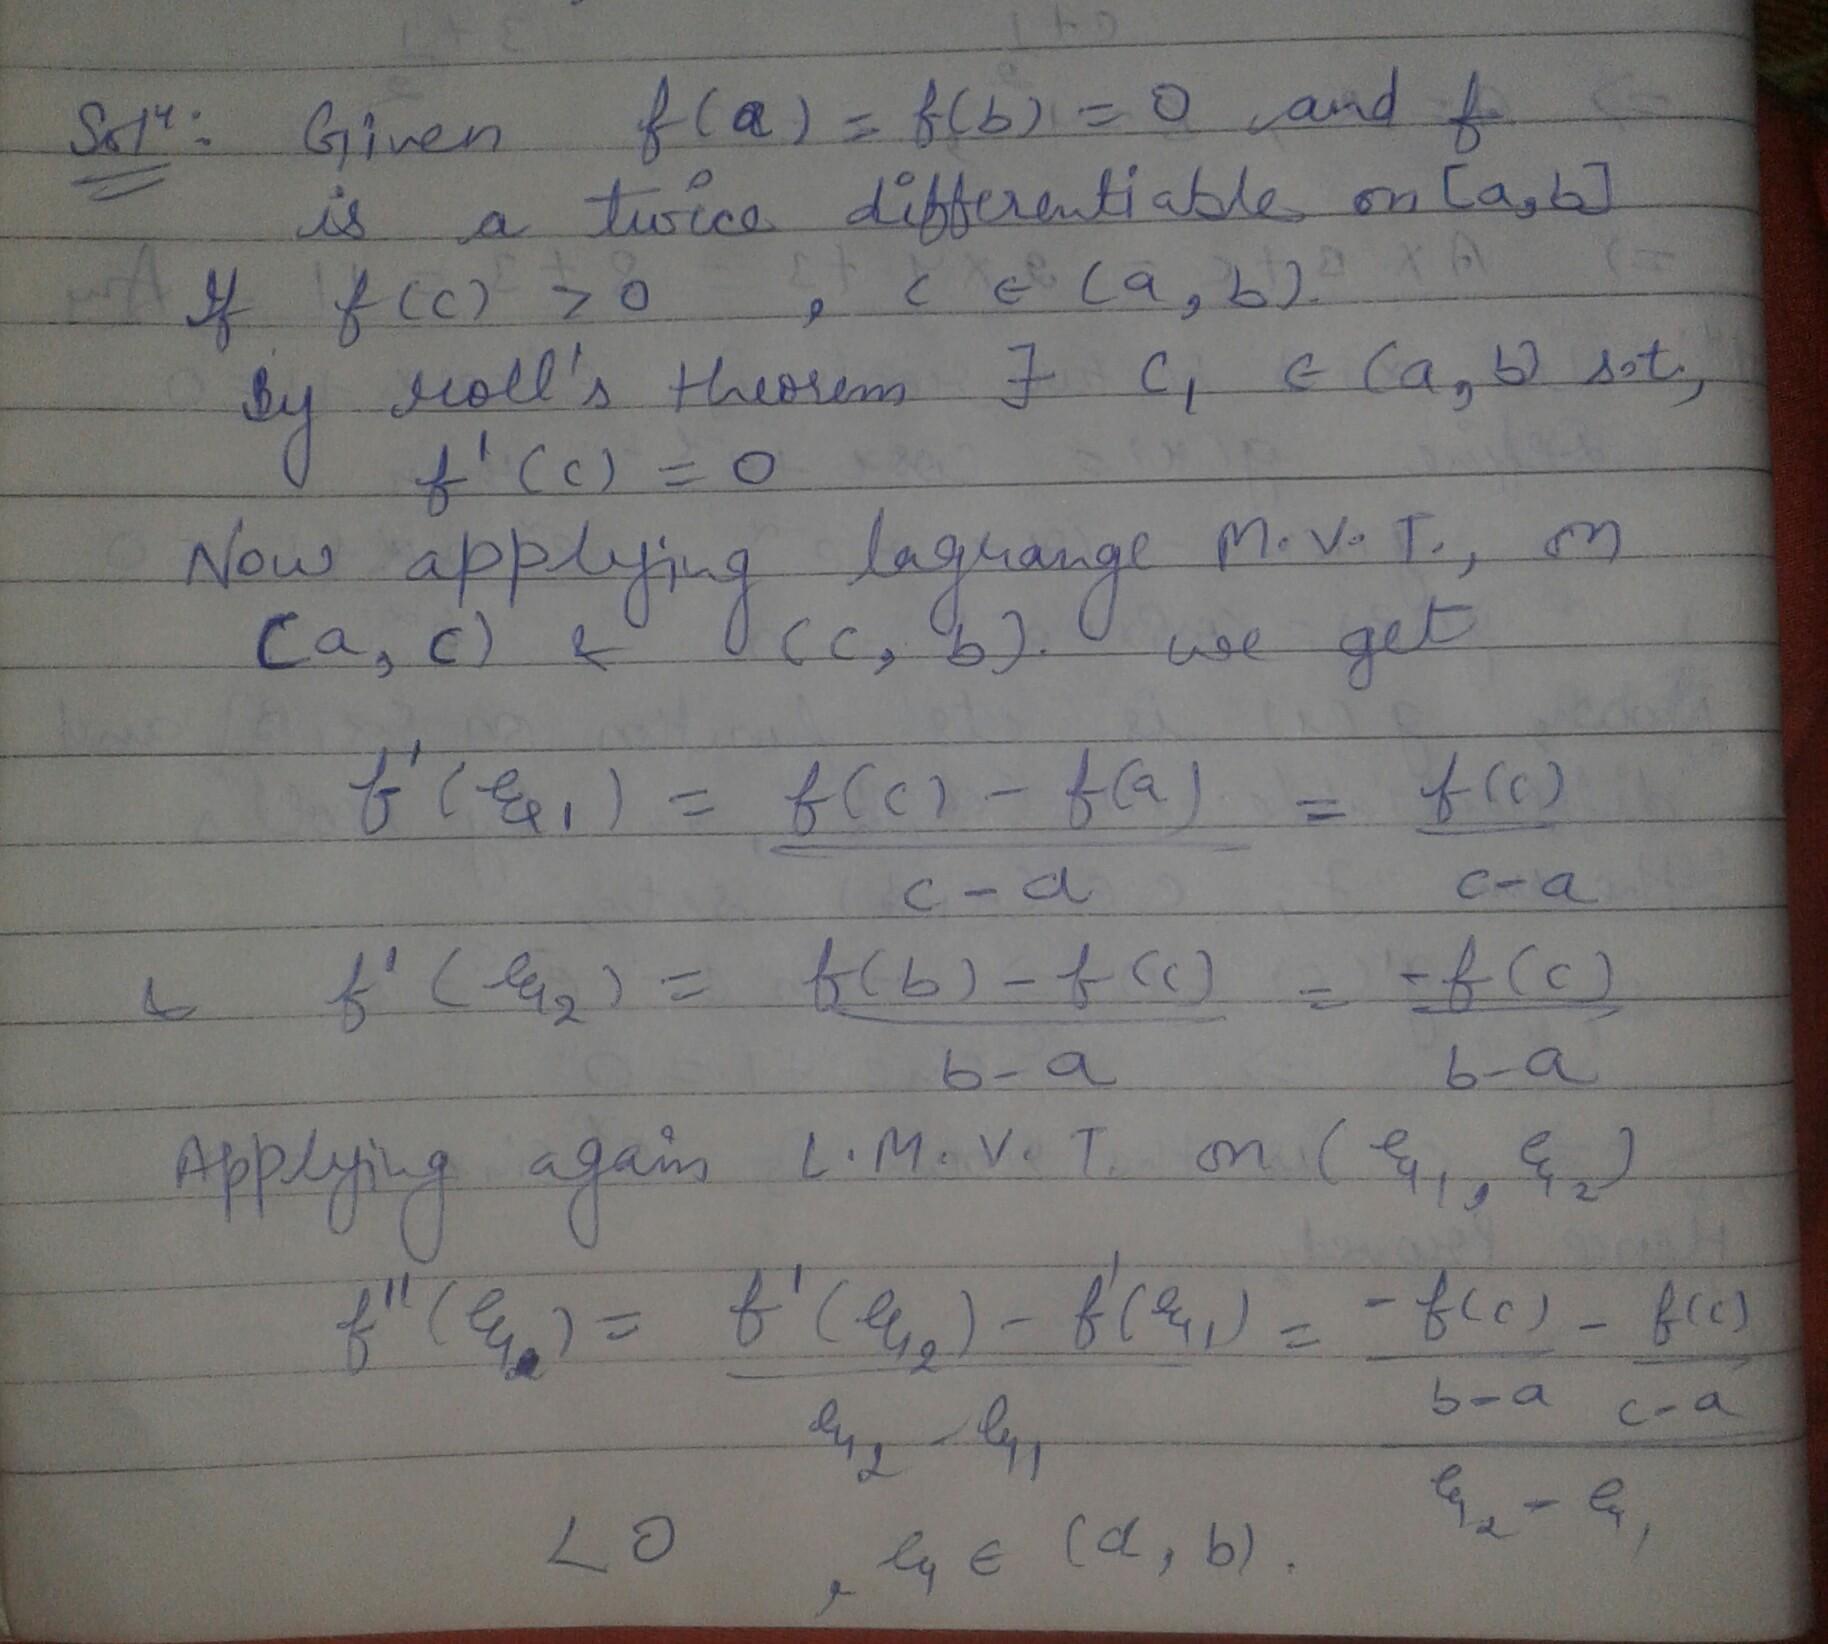 Solⁿ: Given f(a) = f(b) = 0 and f
is a twice differentiable on [a,b]
If f(c) > 0 , c ∈ (a, b).
By roll's theorem ∃ c₁ ∈ (a, b) s.t.,
f'(c) = 0
Now applying lagrange M.V.T., on
(a, c) & (c, b). we get
f'(ξ₁) = f(c) - f(a) / c - a = f(c) / c-a
& f'(ξ₂) = f(b) - f(c) / b - a = -f(c) / b-a
Applying again L.M.V.T. on (ξ₁, ξ₂)
f''(ξ) = f'(ξ₂) - f'(ξ₁) / ξ₂ - ξ₁ = -f(c) / b-a - f(c) / c-a / ξ₂ - ξ₁
< 0 , ξ ∈ (a, b).